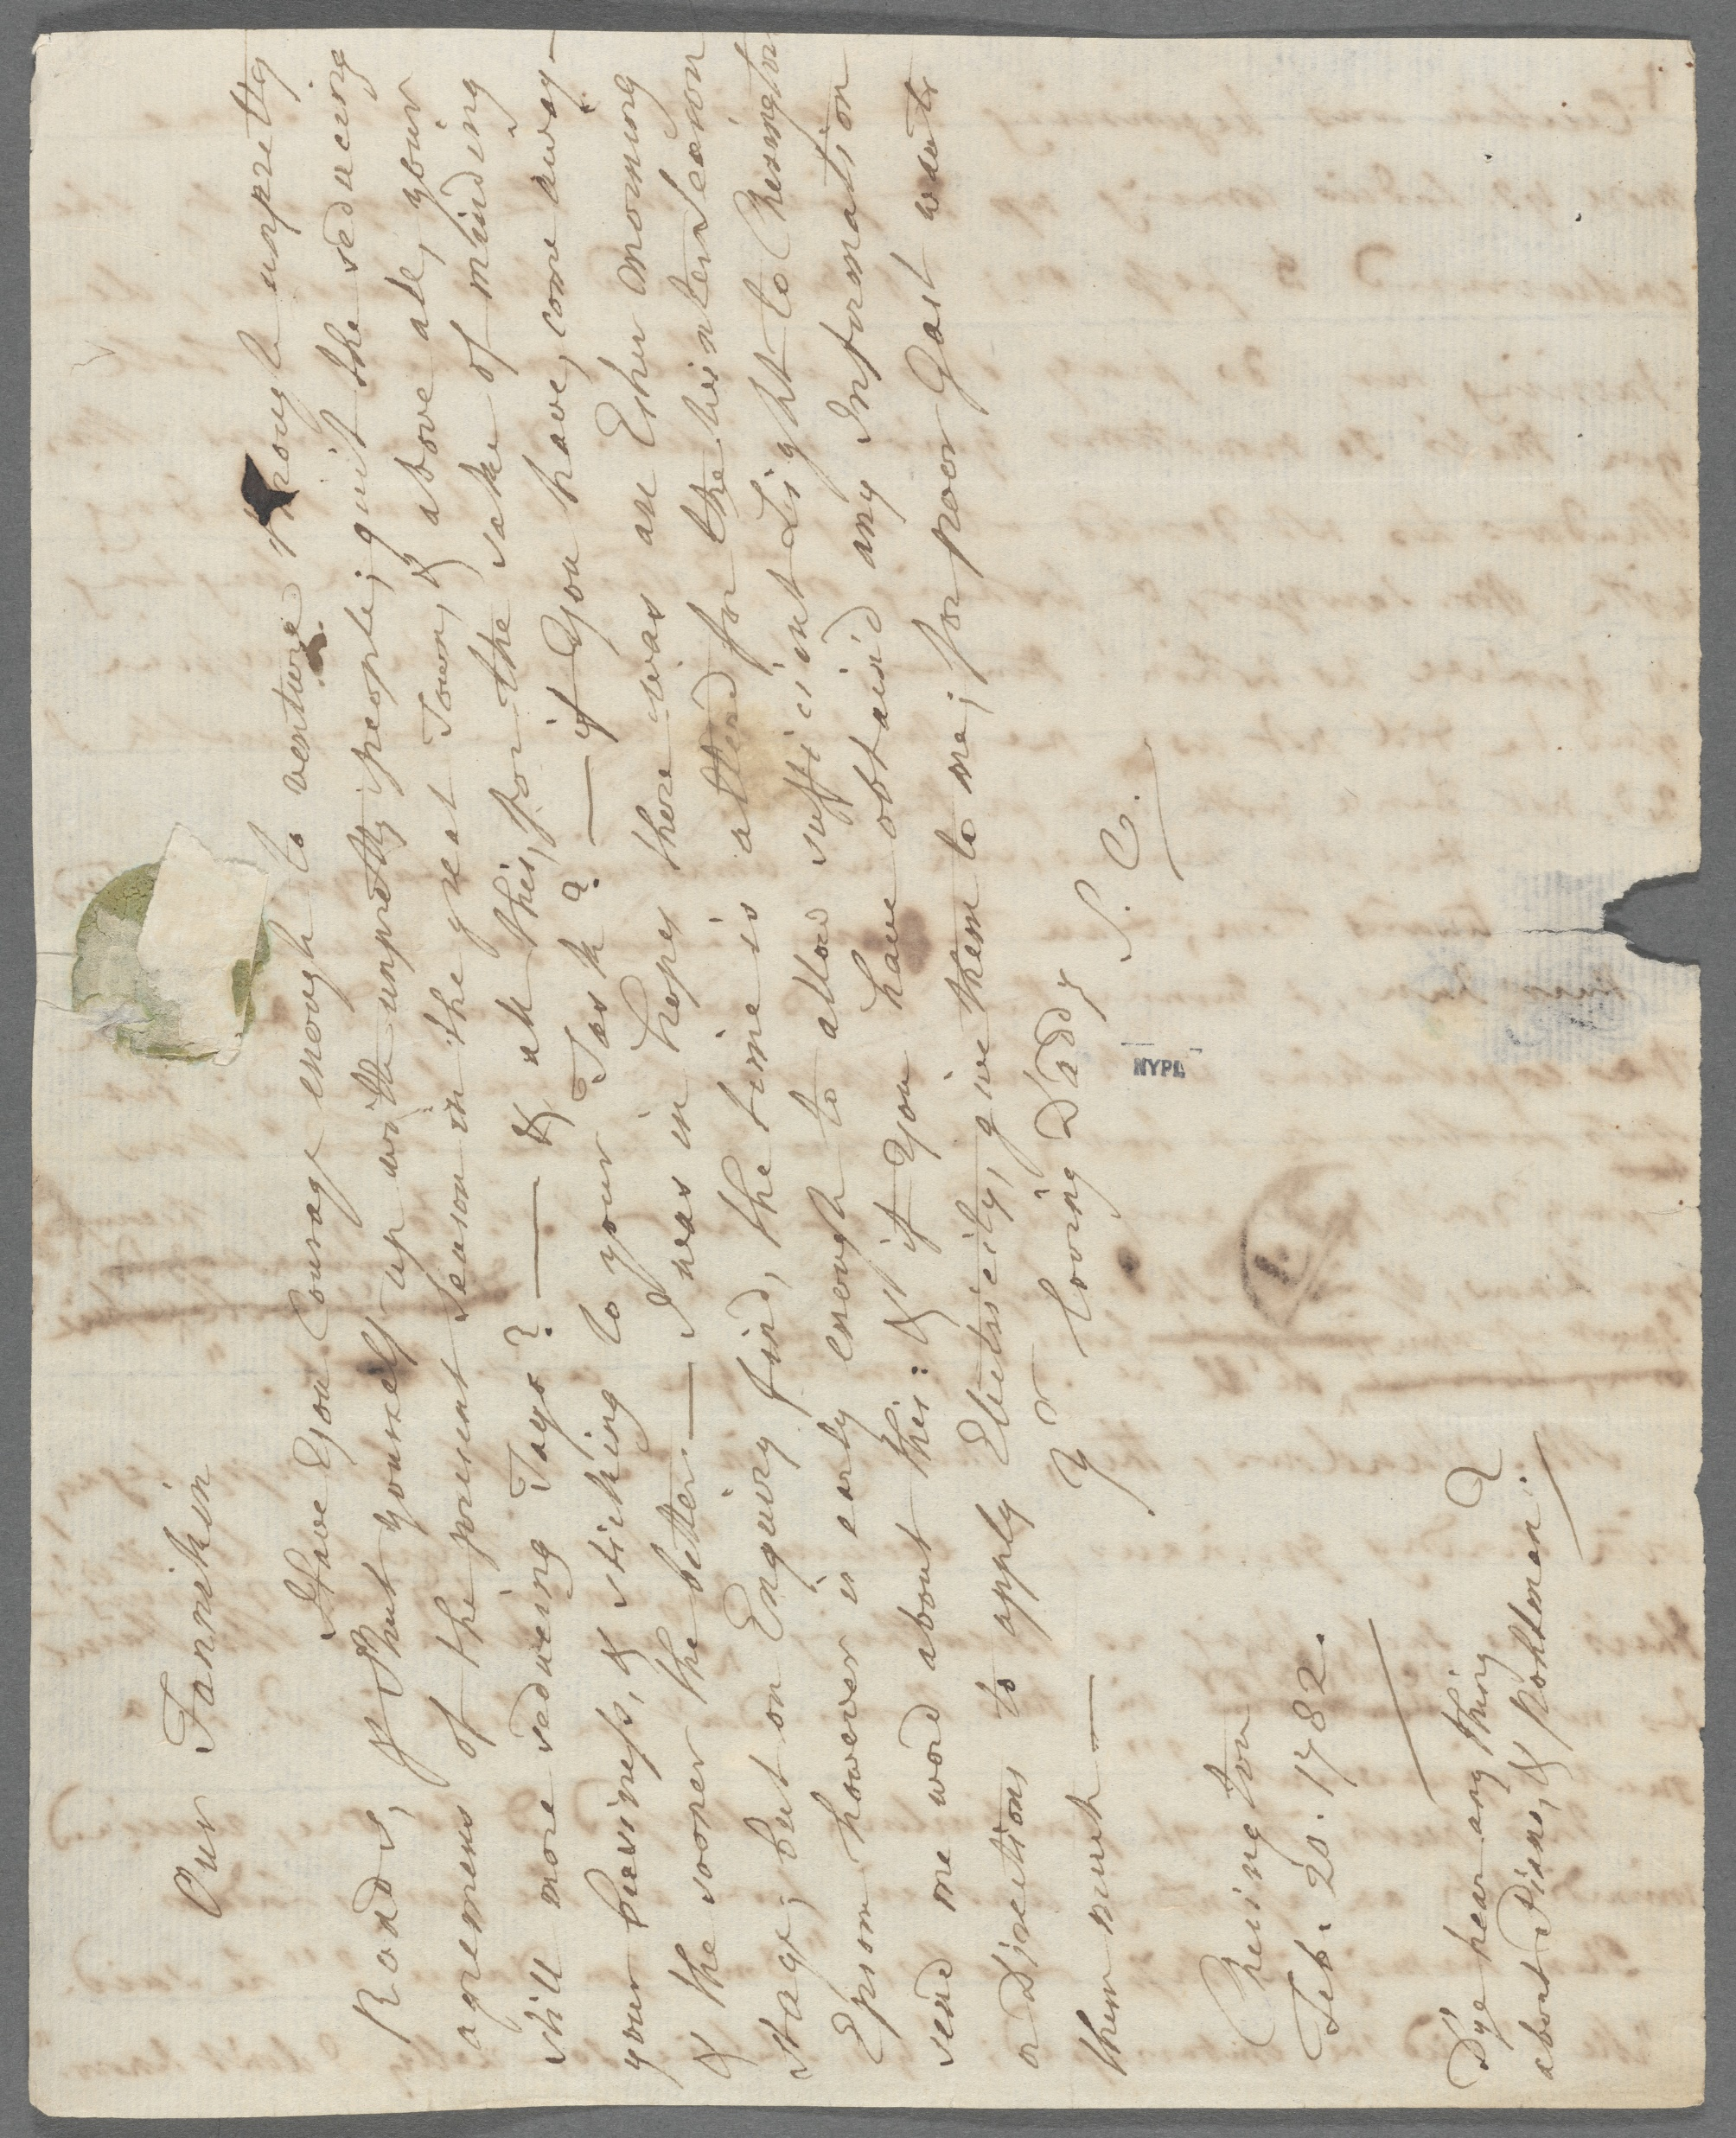 Our Fannikin
Have You Courage enough to venture through unpretty
Roads, & Shut yourself up with unpretty people; quit the seducing
agremens of the present Season in the great Town, & above all, your
still more seducing Tays? — & all this, for the sake of minding
your business, & sticking to your Task? — if You have, come away —
& the sooner the better — I was in hopes there was an Esher morning
stage; but on Enquiry find, the time is altered for the winter Season
Epsom however is early enough to allow sufficient Light to Chesington
send me word about this: & if You have obtain'd any Information
or Directions to apply Electricity, give them to me; for poor Gast wants
them much —
Yr loving Daddy S. C.
Chesington
Feb. 20. 1782.
D'ye hear any thing
about Piano, & Pohlman?
NYPL